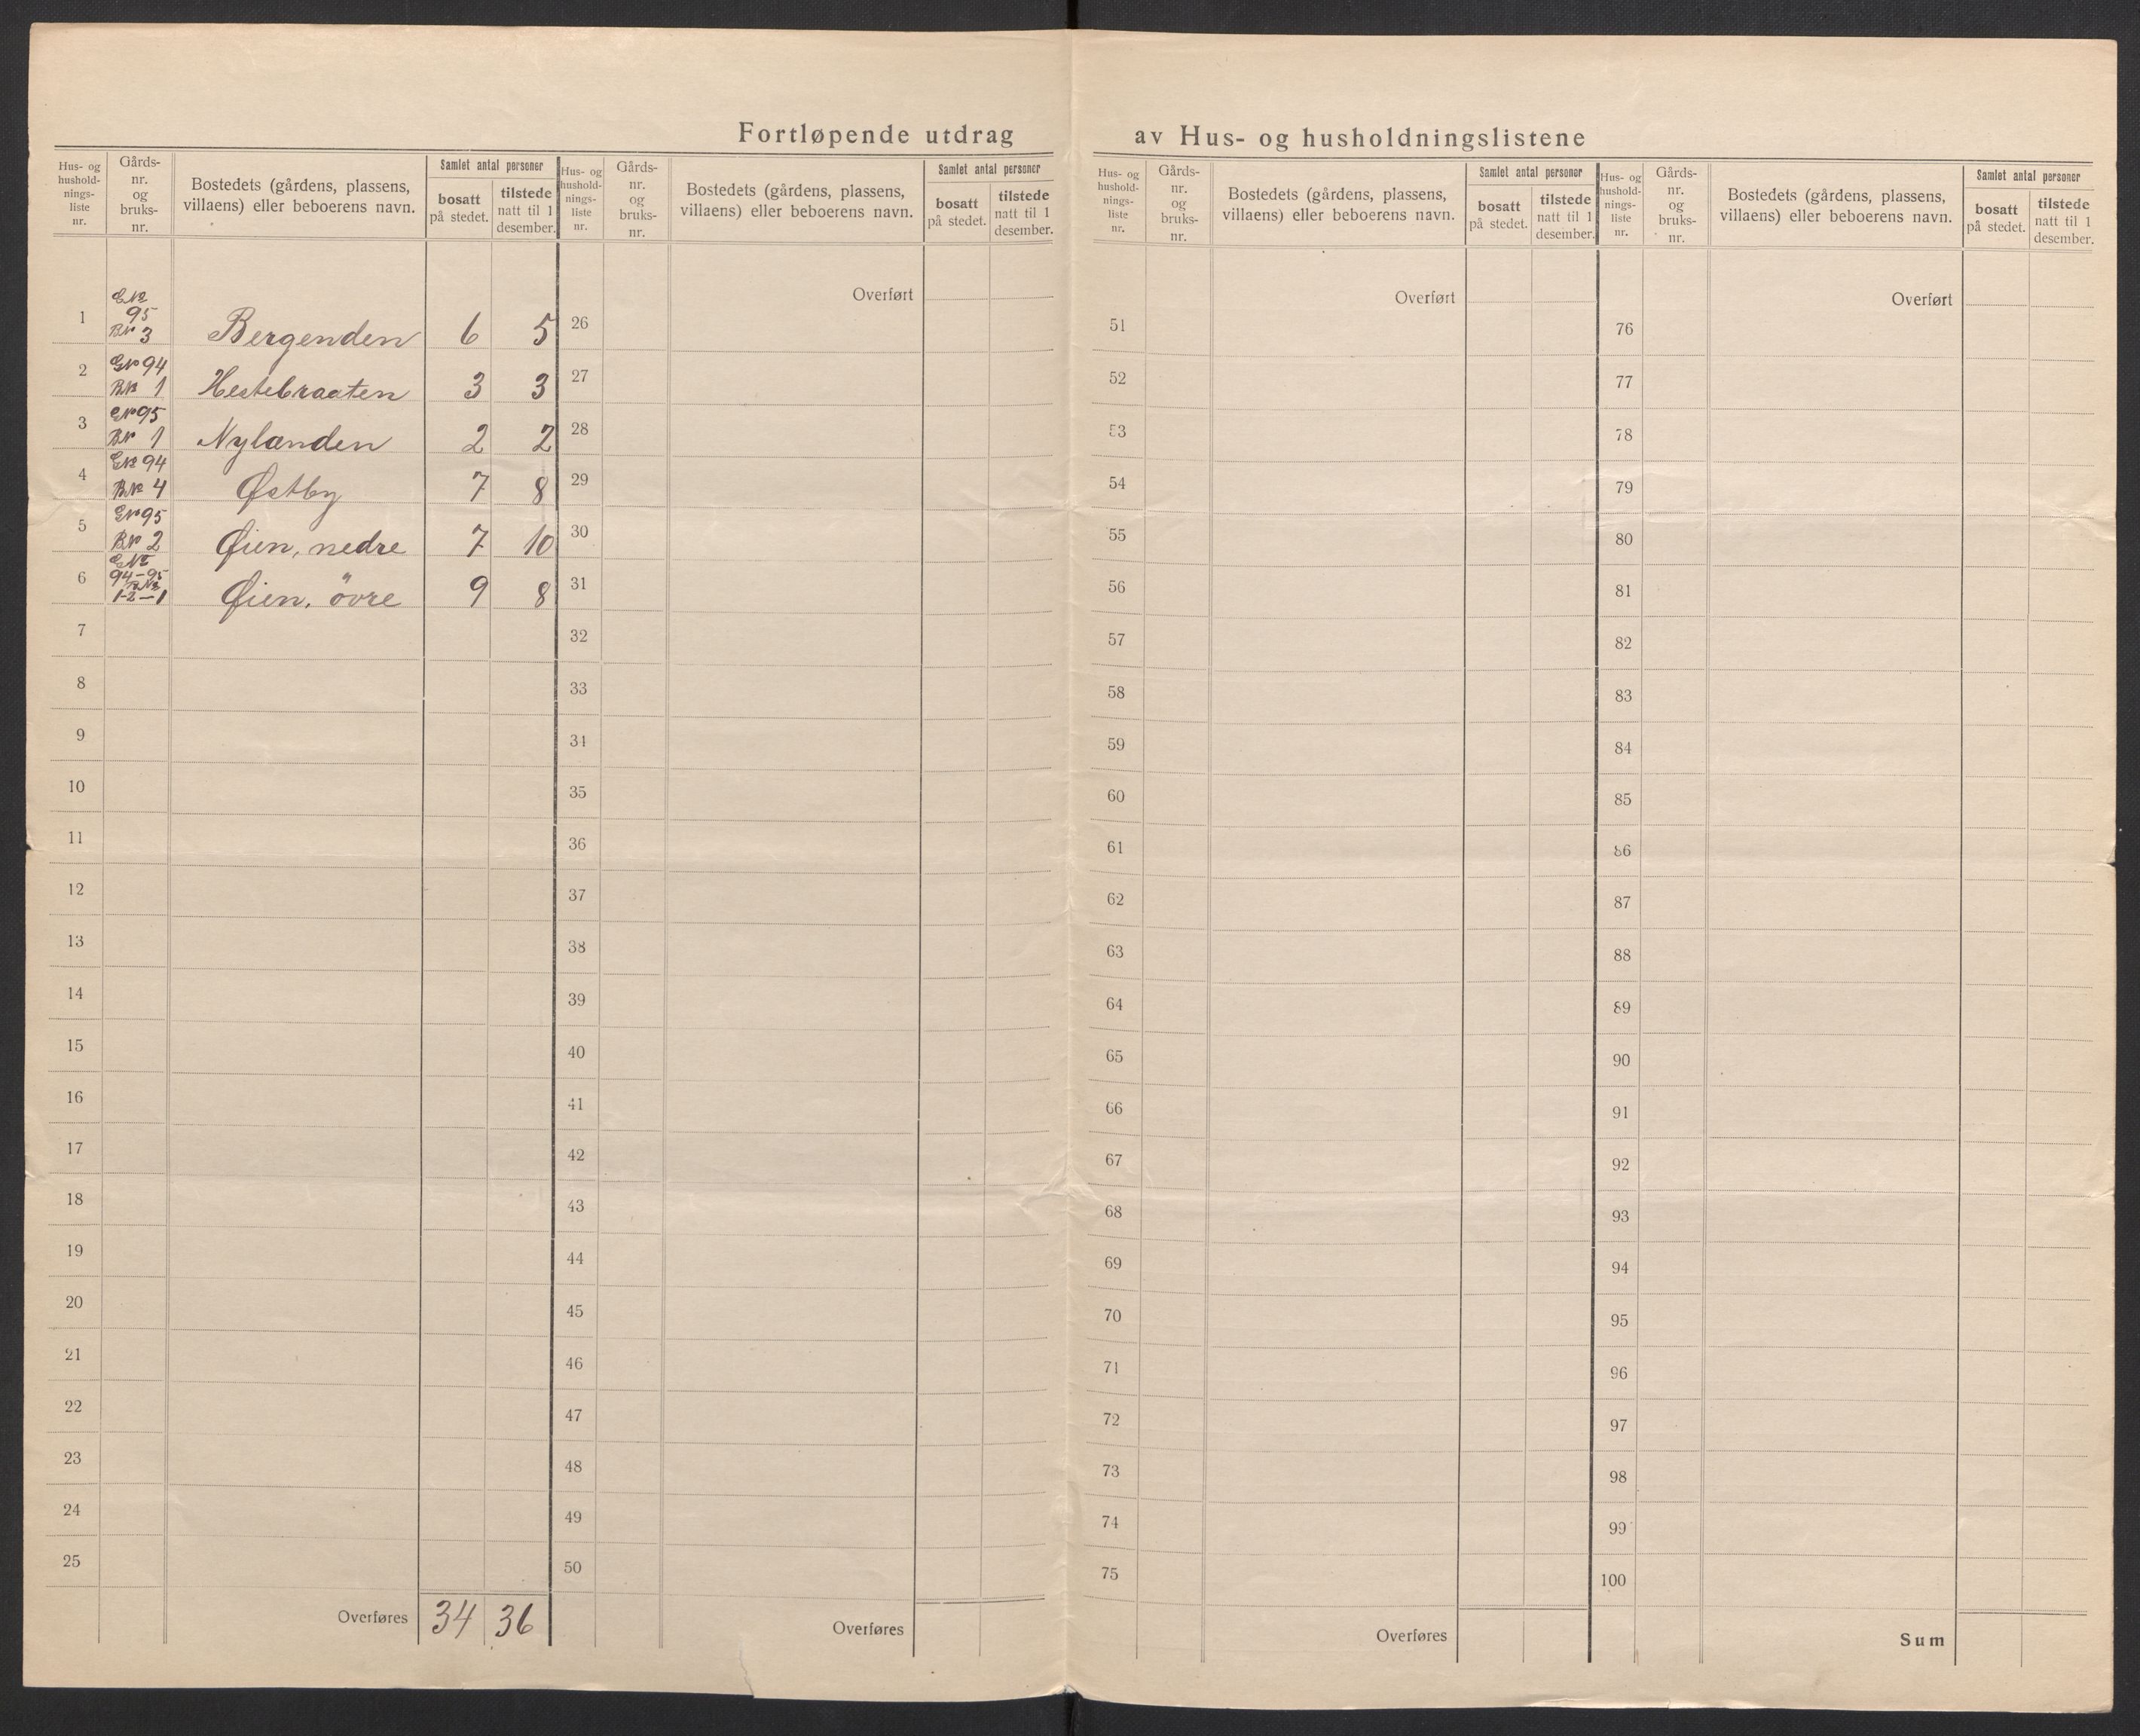 Fortløpende utdrag av Hus- og husholdningslistene
Hus- og hushold- nings- liste nr.
Gårds- nr. og bruks- nr.
Bostedets (gårdens, plassens, villaens) eller beboerens navn.
Samlet antal personer
bosatt på stedet.
tilstede natt til 1 desember.
Hus- og hushold- nings- liste nr.
Gårds- nr. og bruks- nr.
Bostedets (gårdens, plassens, villaens) eller beboerens navn.
Samlet antal personer
bosatt på stedet.
tilstede natt til 1 desember.
Hus- og hushold- nings- liste nr.
Gårds- nr. og bruks- nr.
Bostedets (gårdens, plassens, villaens) eller beboerens navn.
Samlet antal personer
bosatt på stedet.
tilstede natt til 1 desember.
Hus- og hushold- nings- liste nr.
Gårds- nr. og bruks- nr.
Bostedets (gårdens, plassens, villaens) eller beboerens navn.
Samlet antal personer
bosatt på stedet.
tilstede natt til 1 desember.
1 GNr 95 BNr 3 Bergenden 6 5
2 GNr 94 BNr 1 Hestebraaten 3 3
3 GNr 95 BNr 1 Nylænden 2 2
4 GNr 94 BNr 4 Østby 7 8
5 GNr 95 BNr 2 Øien, nedre 7 10
6 GNr 94-95 BNr 1-2-1 Øien, övre 9 8
7
8
9
10
11
12
13
14
15
16
17
18
19
20
21
22
23
24
25
Overføres 34 36
Overført
26
27
28
29
30
31
32
33
34
35
36
37
38
39
40
41
42
43
44
45
46
47
48
49
50
Overføres
Overført
51
52
53
54
55
56
57
58
59
60
61
62
63
64
65
66
67
68
69
70
71
72
73
74
75
Overføres
Overført
76
77
78
79
80
81
82
83
84
85
86
87
88
89
90
91
92
93
94
95
96
97
98
99
100
Sum